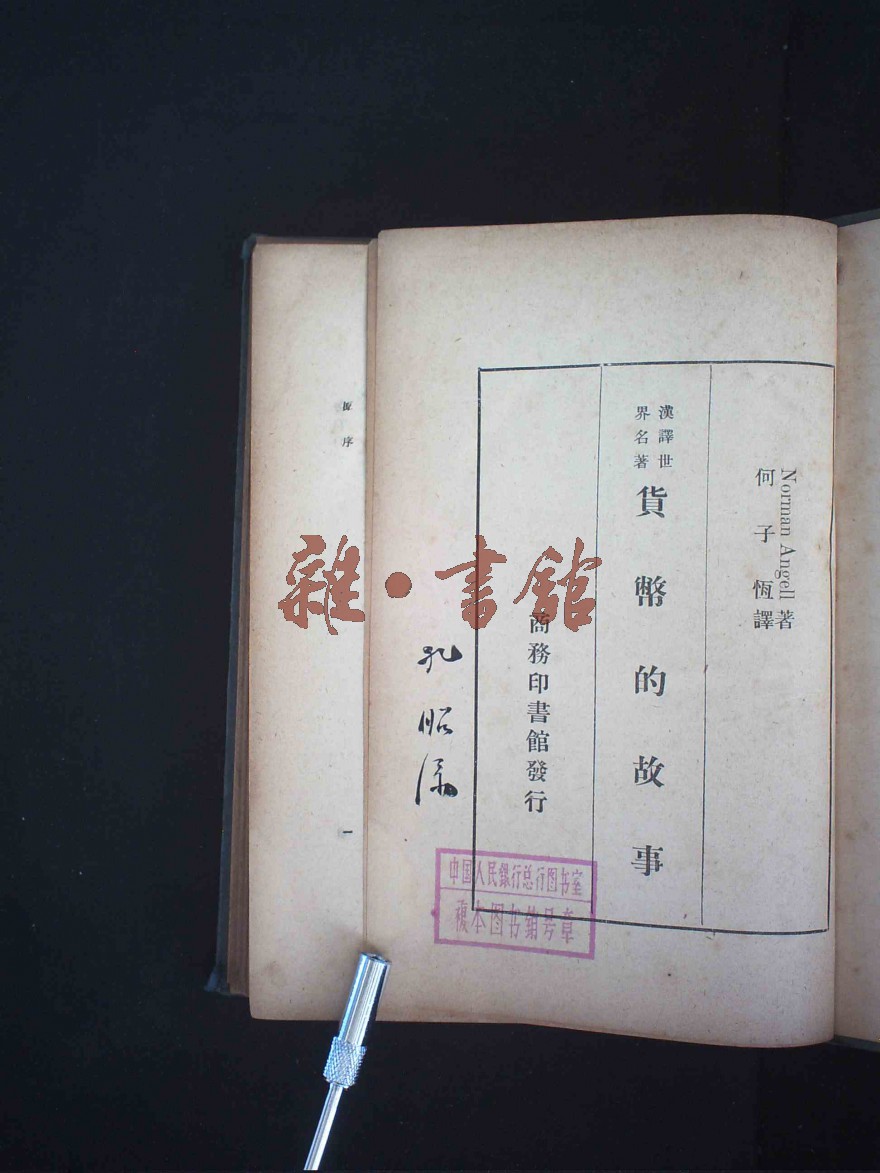 Norman Angell著
何子恆譯
漢譯世
界名著
貨幣的故事
商務印書館發行
孔昭
中国人民銀行总行图书室
複本图书
号章
雜·書館
序
一